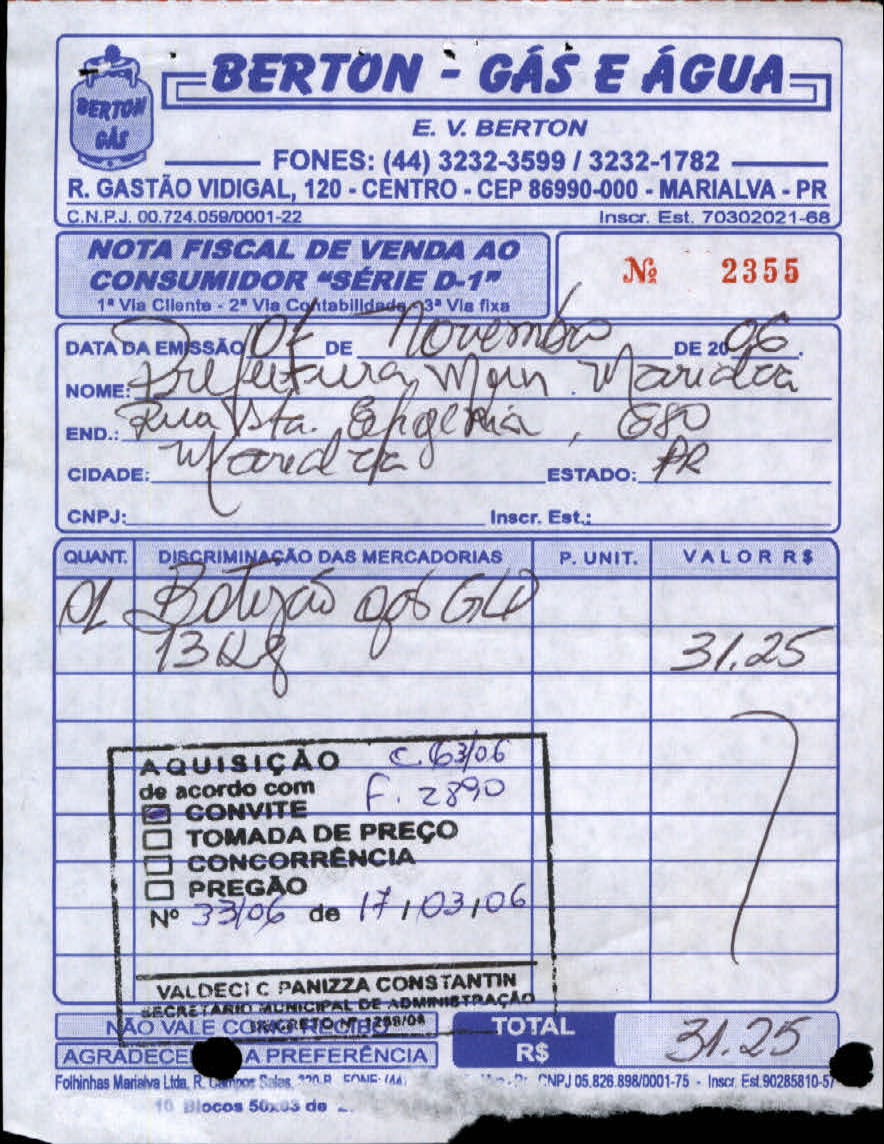 BERTON GÁS
BERTON - GÁS E ÁGUA
E. V. BERTON
FONES: (44) 3232-3599 / 3232-1782
R. GASTÃO VIDIGAL, 120 - CENTRO - CEP 86990-000 - MARIALVA - PR
C.N.P.J. 00.724.059/0001-22 Inscr. Est. 70302021-68
NOTA FISCAL DE VENDA AO
CONSUMIDOR "SÉRIE D-1"
1ª Via Cliente - 2ª Via Contabilidade 3ª Via fixa
Nº 2355
DATA DA EMISSÃO 07 DE Novembro DE 2006.
NOME: Prefeitura Mun. Marialva
END.: Rua Sta. Efigênia, 680
CIDADE: Marialva ESTADO: PR
CNPJ: Inscr. Est.:
QUANT. DISCRIMINAÇÃO DAS MERCADORIAS P. UNIT. VALOR R$
01 Botijão gás GLP
13 Kg 31.25
AQUISIÇÃO C. 63/06
de acordo com F. 2890
CONVITE
TOMADA DE PREÇO
CONCORRÊNCIA
PREGÃO
Nº 33/06 de 17/03/06
VALDECI C PANIZZA CONSTANTIN
SECRETARIO MUNICIPAL DE ADMINISTRAÇÃO
DECRETO Nº
NÃO VALE COMO
AGRADECE A PREFERÊNCIA
TOTAL R$ 31.25
Folhinhas Marialva Ltda. R. Campos Sales, FONE: (44) CNPJ 05.826.898/0001-75 - Inscr. Est. 90285810-57
10 Blocos 50x03 de